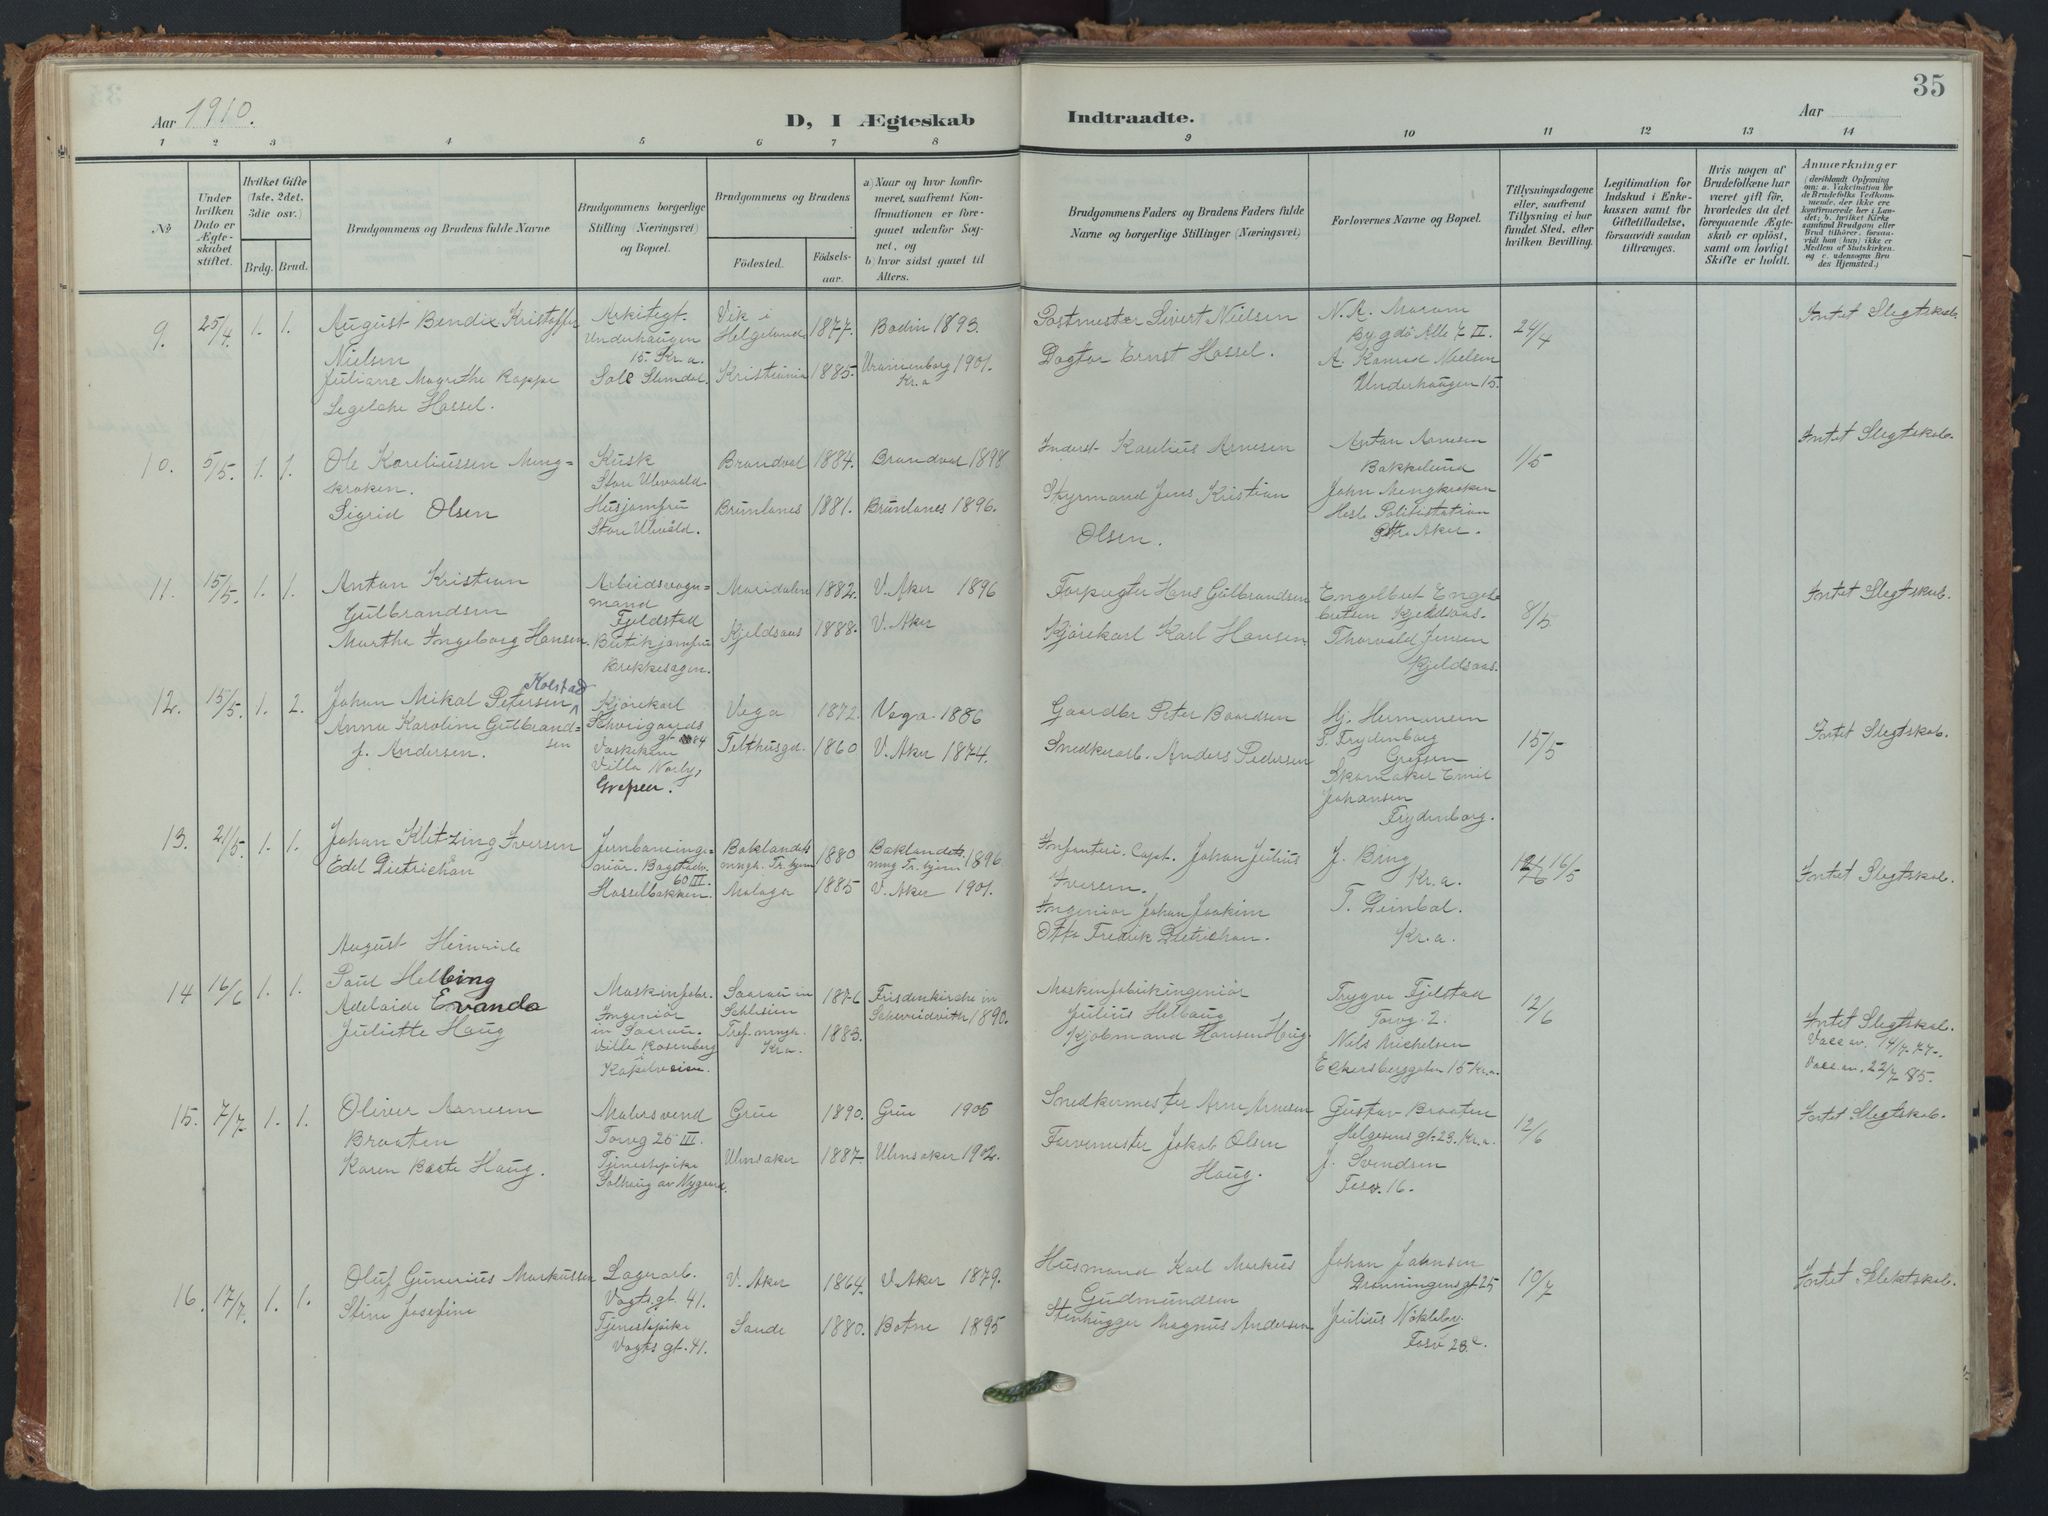 35
Aar 1910.
D, I Ægteskab Indtraadte.
Aar
1 2 3 4 5 6 7 8 9 10 11 12 13 14
No
Under hvilken Dato er Ægteskabet stiftet.
Hvilket Gifte (1ste, 2det, 3die osv.)
Brdg. Brud.
Brudgommens og Brudens fulde Navne
Brudgommens borgerlige Stilling (Næringsvei) og Bopæl.
Brudgommens og Brudens
Födested. Födselsaar.
a) Naar og hvor konfirmeret, saafremt Konfirmationen er foregaaet udenfor Sognet, og
b) hvor sidst gaaet til Alters.
Brudgommens Faders og Brudens Faders fulde Navne og borgerlige Stillinger (Næringsvei)
Forlovernes Navne og Bopæl.
Tillysningsdagene eller, saafremt Tillysning ei har fundet Sted, efter hvilken Bevilling.
Legitimation for Indskud i Enkekassen samt for Giftetilladelse, forsaavidt saadan tiltrænges.
Hvis nogen af Brudefolkene har været gift för, hvorledes da det foregaaende Ægteskab er oplöst, samt om lovligt Skifte er holdt.
Anmærkninger
(deriblandt Oplysning om: a. Vakcination for de Brudefolks Vedkommende, der ikke ere konfirmerede her i Landet; b. hvilket Kirkesamfund Brudgom eller Brud tilhörer, forsaavidt han (hun) ikke er Medlem af Statskirken, og c. udensogns Brudes Hjemsted.)
9. 25/4 1. 1. August Bendix Kristoffer
Nielsen
Juliane Magrethe Rappe
Segelcke Hassel.
Arkitegt.
Underhaugen
15. Kr.a.
Sole Slemdal.
Vik i Helgeland 1877. Bodin 1893.
Kristiania 1885. Uranienborg Kr.a 1901.
Postmester Sivert Nielsen
Dogtor Ernst Hassel.
N. A. Maram
Bygdö Alle 7 II.
A. Konrad Nielsen
Underhaugen 15.
24/4
Intet Slegtskab.
10. 5/5. 1. 1. Ole Kareliussen Meng=
kroken.
Sigrid Olsen
Kusk
Store Ulevold
Husjomfru
Store Ulvold.
Brandval 1884. Brandval 1898
Brunlanes 1881. Brunlanes 1896.
Inderst Karelius Arnesen
Styrmand Jens Kristian
Olsen.
Anton Arnesen
Bakkelund
John Mengkroken
Hesle Politistation
Aker.
1/5
Intet Slegtskab.
11. 15/5. 1. 1. Anton Kristian
Gulbrandsen
Marthe Ingeborg Hansen.
Arbeidsvogn=
mand
Fjeldstad
Butikjomfru
Brekkesagen.
Maridalen 1882. V. Aker 1896
Kjeldsaas 1888. V. Aker
Forpagter Hans Gulbrandsen
Kjörekarl Karl Hansen.
Engelbret Engel=
bretsen Kjeldsaas.
Thorvald Jensen
Kjeldsaas.
8/5
Intet Slegtskab.
12. 15/5. 1. 2. Johan Mikal Petersen Kolstad
Anna Karoline Gulbrand=
sen
f. Andersen.
Kjörekarl
Schweigaards
gt 84
Vaskekone
Villa Norby,
Grefsen.
Vega 1872. Vega 1886
Telthusgd. 1860 V. Aker 1874.
Gaardbr Peter Baardsen
Snedkerarb. Anders Pedersen
Hj. Hermansen
Frydenborg
Grefsen
Skomaker Emil
Johansen
Frydenborg.
15/5
Intet Slegtskab.
13. 21/5. 1. 1. Johan Kletzing Iversen
Edel Dietrichson
Jernbaneinge=
niör. Bogstadv.
60 III.
Hasselbakken.
Baklandets mngh. Tr.hjem 1880 Baklandets mng Tr.hjem 1896.
Malaga 1885 V. Aker 1901.
Infanteri. Capt. Johan Julius
Iversen.
Ingeniör Johan Joakim
Otto Fredrik Dietrichson.
J. Bing
Kr.a.
T. Deinbol.
Kr.a.
16/5
Intet Slegtskab.
14 16/6 1. 1. August Heinrich
Paul Helbing
Adelaide Evanda
Juliette Haug
Maskinfabr.
Ingeniör
in Saarau.
Villa Rosenberg
Kapelveien.
Saarau in Schlesien 1876 Friedenkirche in Schweidnitz 1890.
Tref. mngh. Kr.a. 1883.
Maskinfabrikingeniör
Julius Helbing
Kjöbmand Hansen Haug.
Trygve Fjelstad
Torvg. 2.
Nils Michelsen
Eckersbergsgaten 15 Kr.a.
12/6
Intet Slegtskab.
Vacc av. 14/7 77.
Vacc av. 22/7 85.
15. 7/7 1. 1. Oliver Arnesen
Braaten
Karen Beate Haug.
Malersvend
Torvg 25 III.
Tjenestepike
Solhaug av Nygaard.
Grue 1890. Grue 1905
Ulensaker 1887. Ulensaker 1902.
Snedkermester Arne Arnesen
Farvemester Jakob Olsen
Haug.
Gustav Braaten
Helgesens gt. 23. Kr.a.
J. Svendsen
Fosv. 16.
12/6
Intet Slegtskab.
16. 17/7. 1. 1. Oluf Gunerius Markussen
Stine Josefine
Lagerarb.
Vogts. gt. 41.
Tjenestepike
Vogts gt. 41.
V. Aker 1864. V. Aker 1879.
Sande 1880. Botne 1895
Husmand Karl Markus
Gudmundsen
Stenhugger Magnus Andersen
Johan Johnsen
Dronningensgt 25
Julius Nökleby.
Fosv 23.c
10/7
Intet Slektskab.